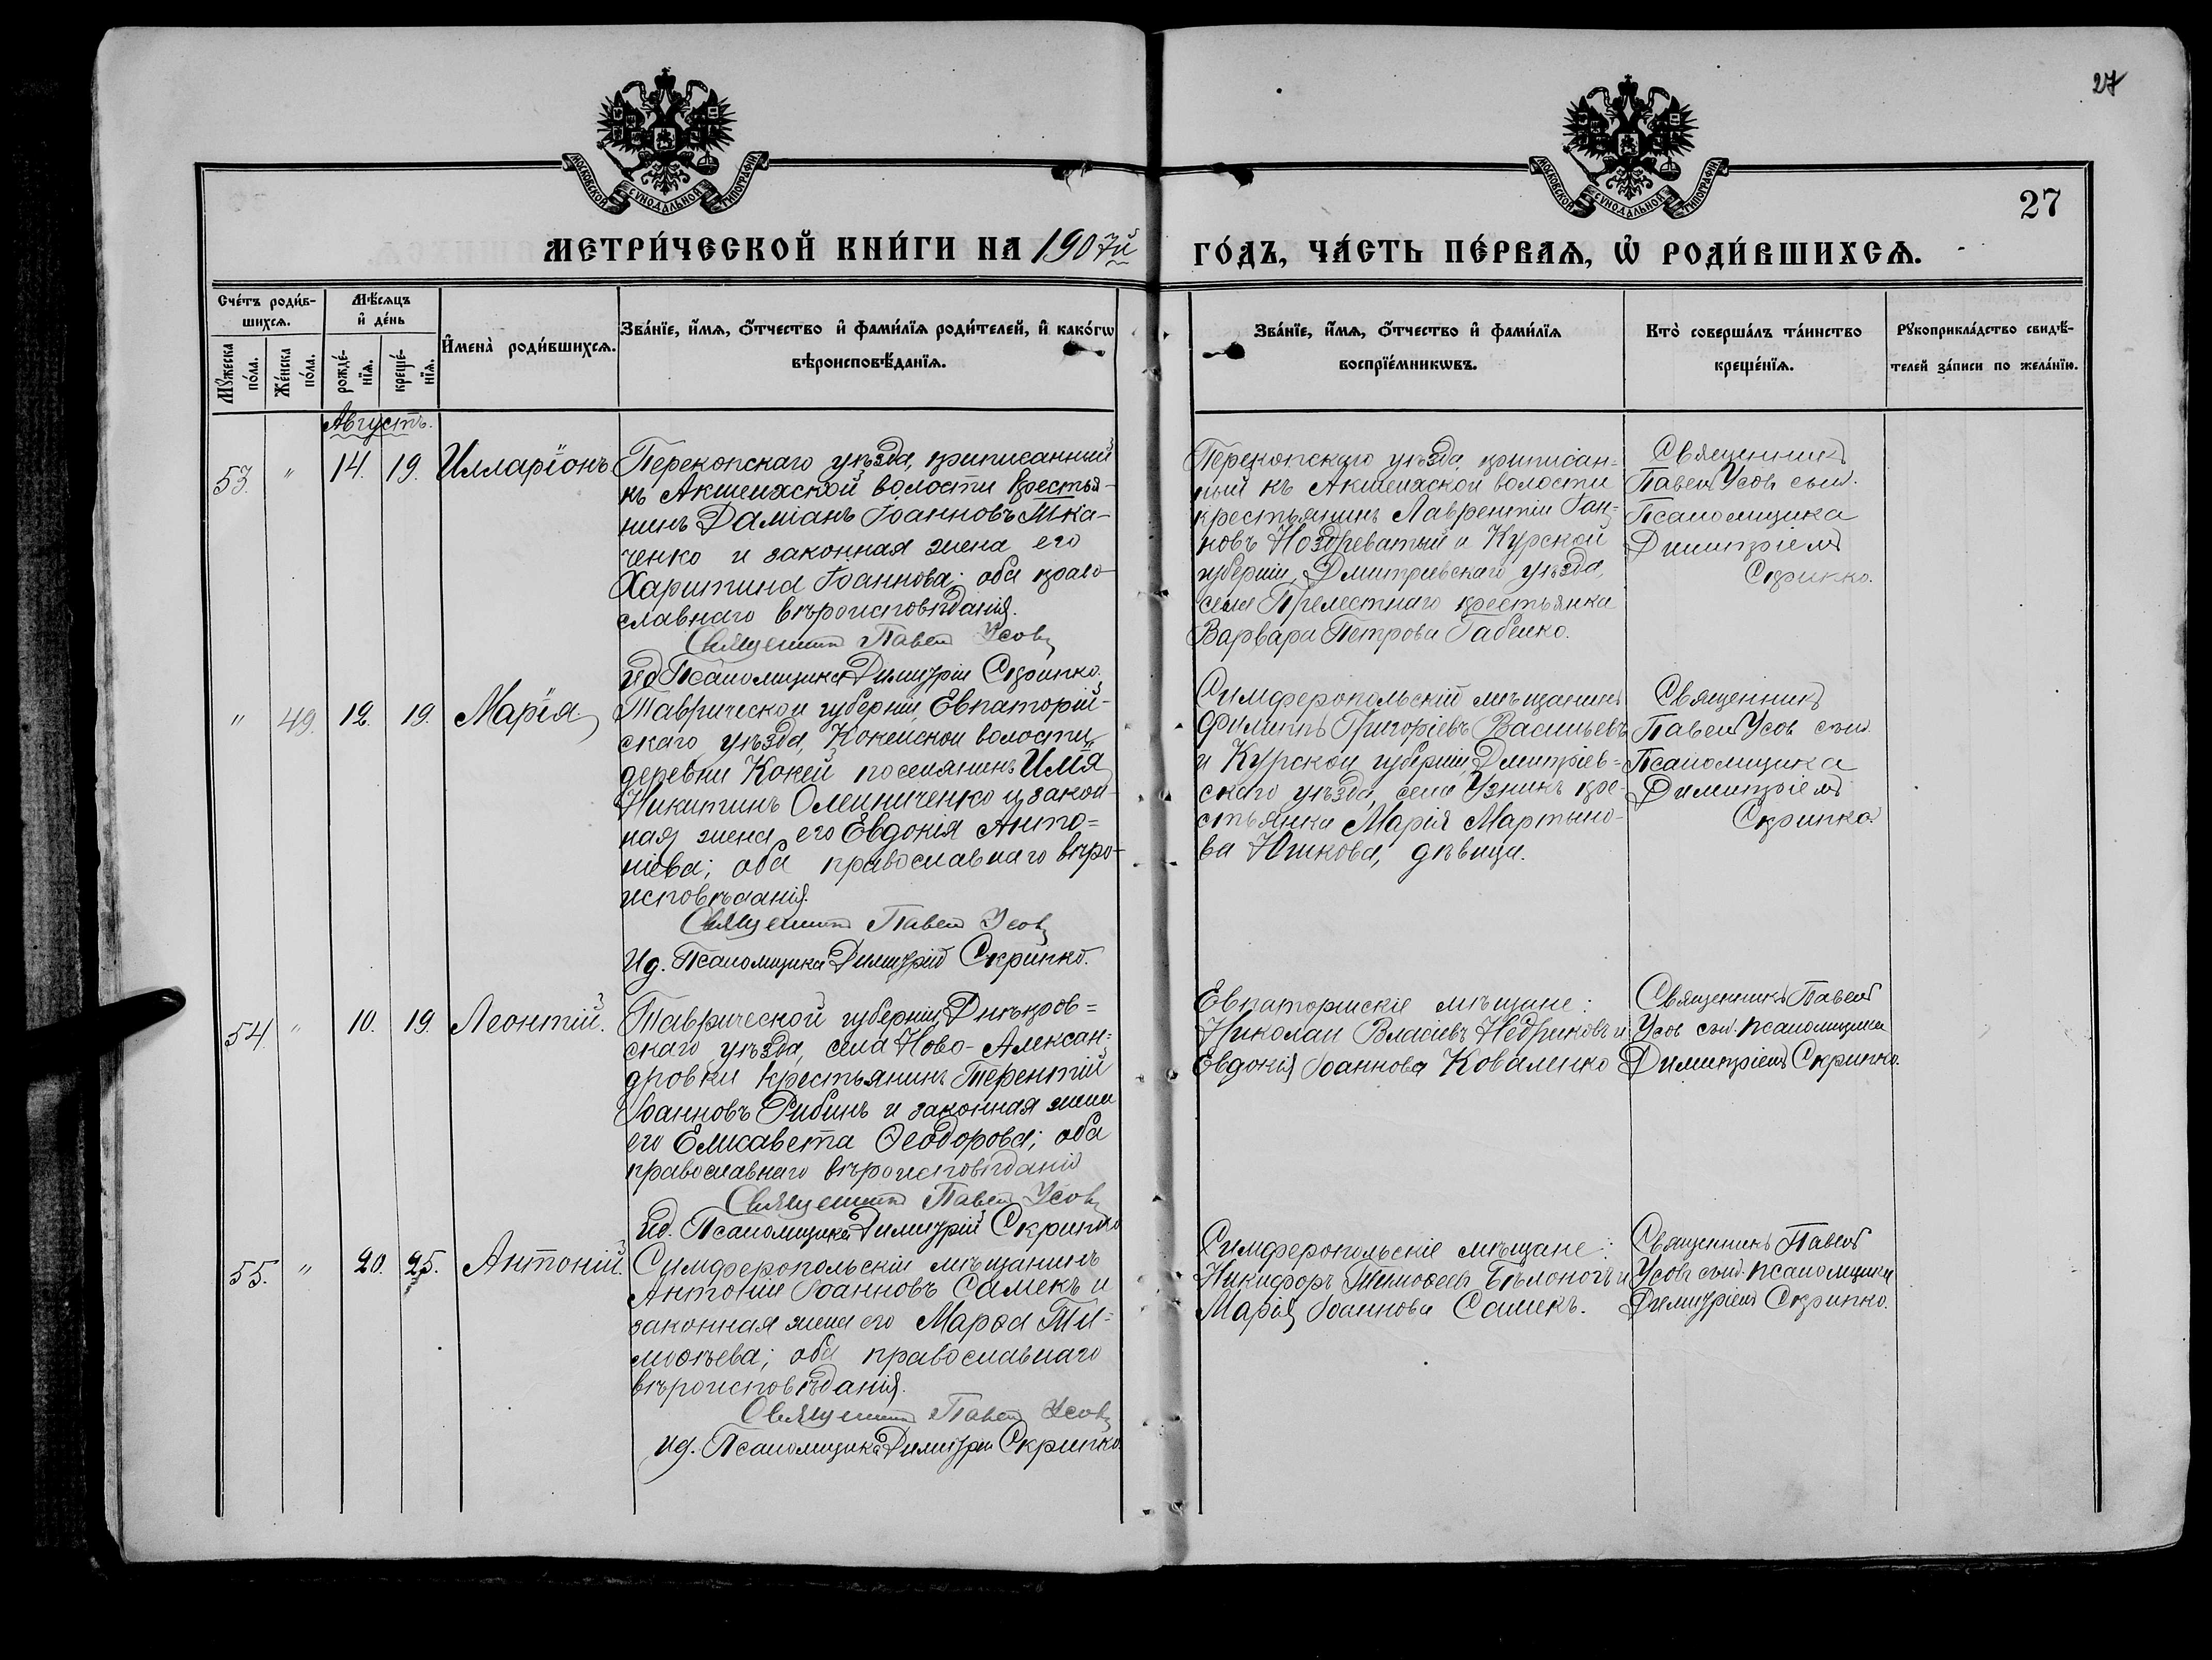 27
МОСКОВСКОЙ СѴНОДАЛЬНОЙ ТИПОГРАФІИ
МОСКОВСКОЙ СѴНОДАЛЬНОЙ ТИПОГРАФІИ
27
МЕТРИ́ЧЕСКОЙ КНИ́ГИ НА 1907й
ГО́ДЪ, ЧА́СТЬ ПЕ́РВАѦ, Ѡ҆ РОДИ́ВШИХСѦ.
Сче́тъ роди́в-
шихсѧ.
Мѣ́сѧцъ
и҆ де́нь
Мꙋ́жеска
по́ла.
Же́нска
по́ла.
рожде́-
нїѧ.
креще́-
нїѧ.
И҆мена̀ роди́вшихсѧ.
Зва́нїе, и҆́мѧ, ѻ҆́тчество и҆ фами́лїѧ роди́телей, и҆ како́гѡ
вѣроисповѣ́данїѧ.
Зва́нїе, и҆́мѧ, ѻ҆́тчество и҆ фами́лїѧ
воспрїе́мникѡвъ.
Кто̀ соверша́лъ та́инство
креще́нїѧ.
Рꙋкоприкла́дство свидѣ́-
телей за́писи по жела́нїю.
Августъ.
53. " 14. 19. Илларіонъ
Перекопскаго уѣзда, приписанный
къ Акшеихской волости крестья-
нинъ Даміанъ Іоанновъ Тка-
ченко и законная жена его
Харитина Іоаннова; оба право-
славнаго вѣроисповѣданія.
Священникъ Павелъ Усовъ
ид Псаломщика Димитрій Скрипко.
Перекопскаго уѣзда, приписан=
ный къ Акшеихской волости
крестьянинъ Лаврентій Іоан=
новъ Ноздреватый и Курской
губерніи, Дмитріевскаго уѣзда,
села Прелестнаго крестьянка
Варвара Петрова Габелко.
Священникъ
Павелъ Усовъ съ ид.
Псаломщика
Димитріемъ
Скрипко.
" 49. 12. 19. Марія
Таврической губерніи, Евпаторій-
скаго уѣзда, Кокейской волости,
деревни Кокей поселянинъ Илія
Никитинъ Олейниченко и закон-
ная жена его Евдокія Анто=
ніева; оба православнаго вѣро-
исповѣданія.
Священникъ Павелъ Усовъ
Ид. Псаломщика Димитрій Скрипко.
Симферопольскій мѣщанинъ
Филиппъ Григоріевъ Васильевъ
и Курской губерніи, Дмитріев=
скаго уѣзда, села Узникъ кре-
стьянка Марія Мартыно-
ва Юшкова, дѣвица.
Священникъ
Павелъ Усовъ съ ид
Псаломщика
Димитріемъ
Скрипко.
54. " 10. 19. Леонтій.
Таврической губерніи, Днѣпров=
скаго уѣзда, села Ново-Алексан=
дровки крестьянинъ Терентій
Іоанновъ Рибинъ и законная жена
его Елисавета Ѳеодорова; оба
православнаго вѣроисповѣданія
Священникъ Павелъ Усовъ
Ид. Псаломщика Димитрій Скрипко
Евпаторійскіе мѣщане:
Николай Власіевъ Недриковъ и
Евдокія Іоаннова Коваленко
Священникъ Павелъ
Усовъ съ ид. псаломщика
Димитріемъ Скрипко.
55. " 20. 25. Антоній.
Симферопольскій мѣщанинъ
Антоній Іоанновъ Самекъ и
законная жена его Марѳа Ти-
моѳеева; оба православнаго
вѣроисповѣданія.
Священникъ Павелъ Усовъ
ид. Псаломщика Димитрій Скрипко.
Симферопольскіе мѣщане:
Никифоръ Тимоѳеевъ Бѣлоногъ и
Марія Іоаннова Самекъ.
Священникъ Павелъ
Усовъ съ ид. псаломщика
Димитріемъ Скрипко.